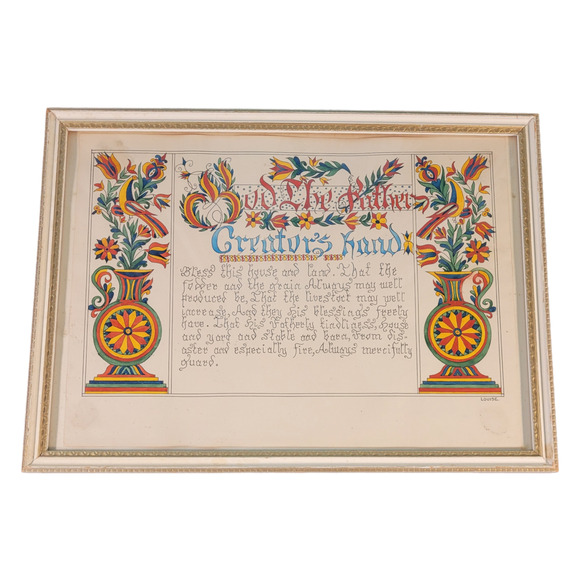 God The Father
Creator's hand
Bless this house and land. That the
fodder and the grain Always may well
produced be, That the livestock may well
increase, And they His blessings freely
have. That His Fatherly kindliness, House
and yard and stable and barn, From dis-
aster and especially fire, Always mercifully
guard.